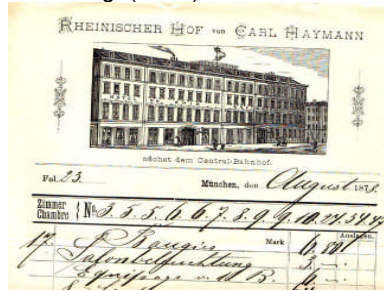 RHEINISCHER HOF von CARL HAYMANN
nächst dem Central-Bahnhof.
Fol. 23. München, den August 187
Zimmer Chambre No. 3. 5. 5. 6. 6. 7. 8. 9. 9. 10. 24. 34.
Mark Auslagen.
17. Bougies 6. 80
Salonbeleuchtung 3.
Equipage